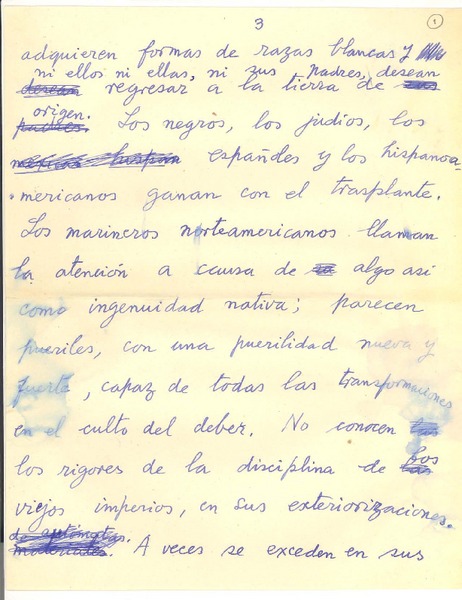 3
1
adquieren formas de razas blancas y
ni ellos ni ellas, ni sus padres, desean
desean regresar a la tierra de
origen.
padres. Los negros, los judios, los
españoles y los hispanoa-
mericanos ganan con el trasplante.
Los marineros norteamericanos llaman
la atención a causa de algo así
como ingenuidad nativa; parecen
pueriles, con una puerilidad nueva y
fuerte, capaz de todas las transformaciones
en el culto del deber. No conocen
los rigores de la disciplina de los
viejos imperios, en sus exteriorizaciones.
de autómatas.
A veces se exceden en sus